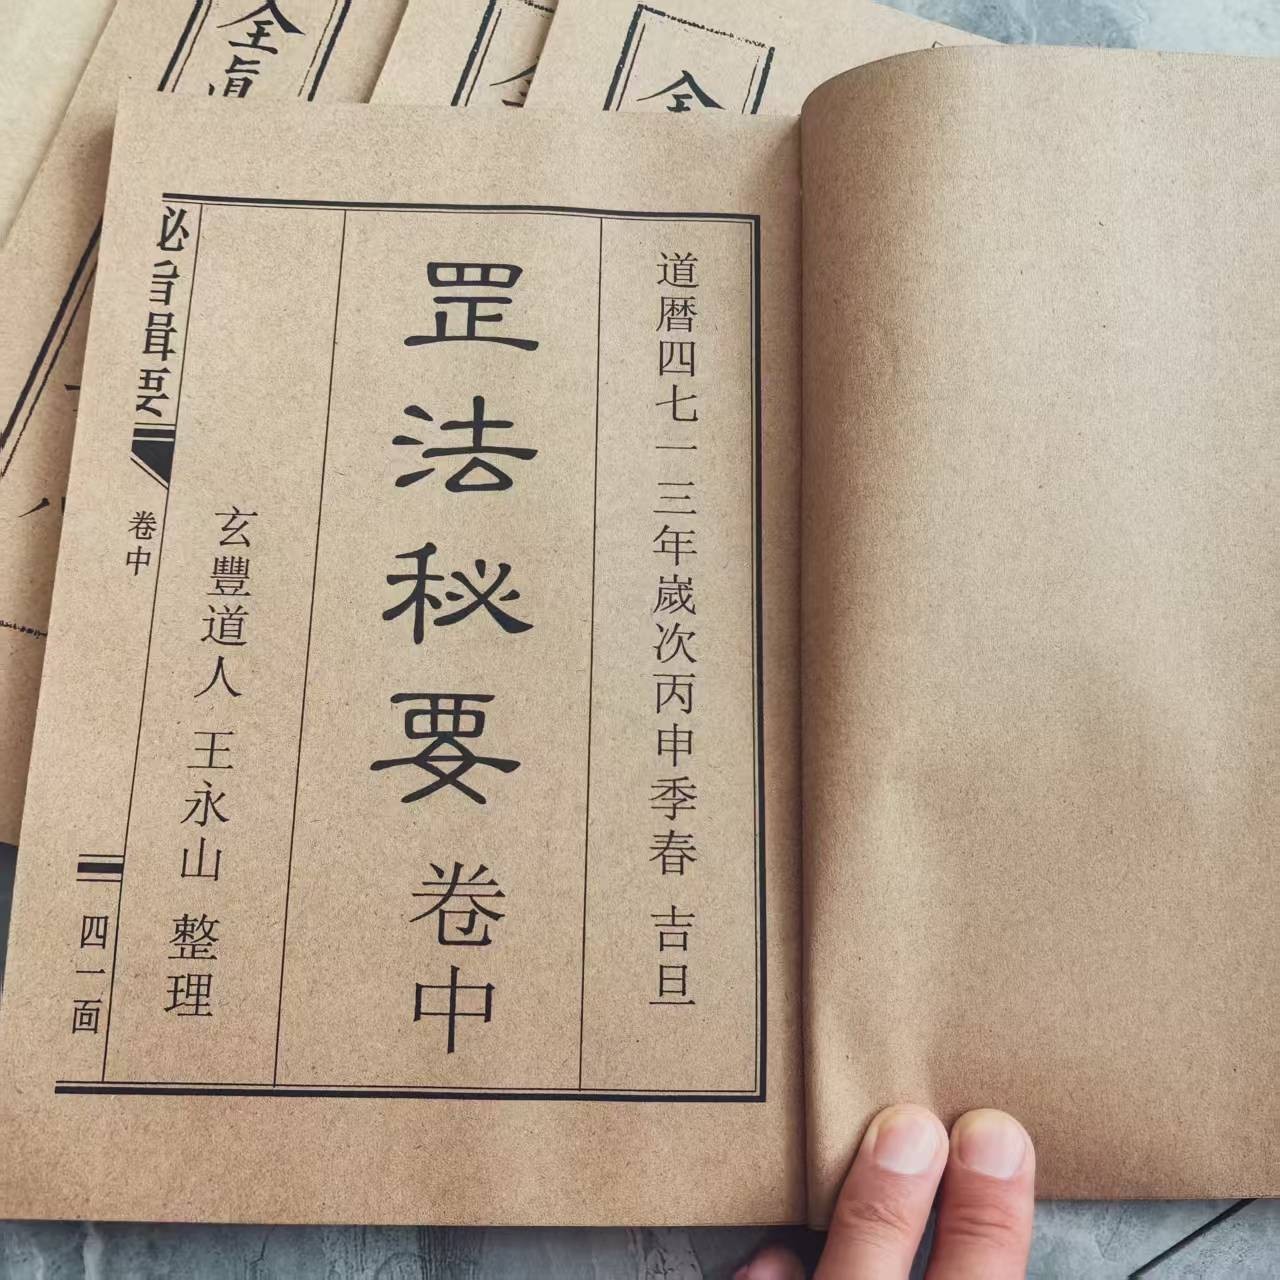 道暦四七一三年嵗次丙申季春 吉旦
罡法秘要 卷中
玄豐道人 王永山 整理
必旨輯要
卷中
四一面
全真
全
全